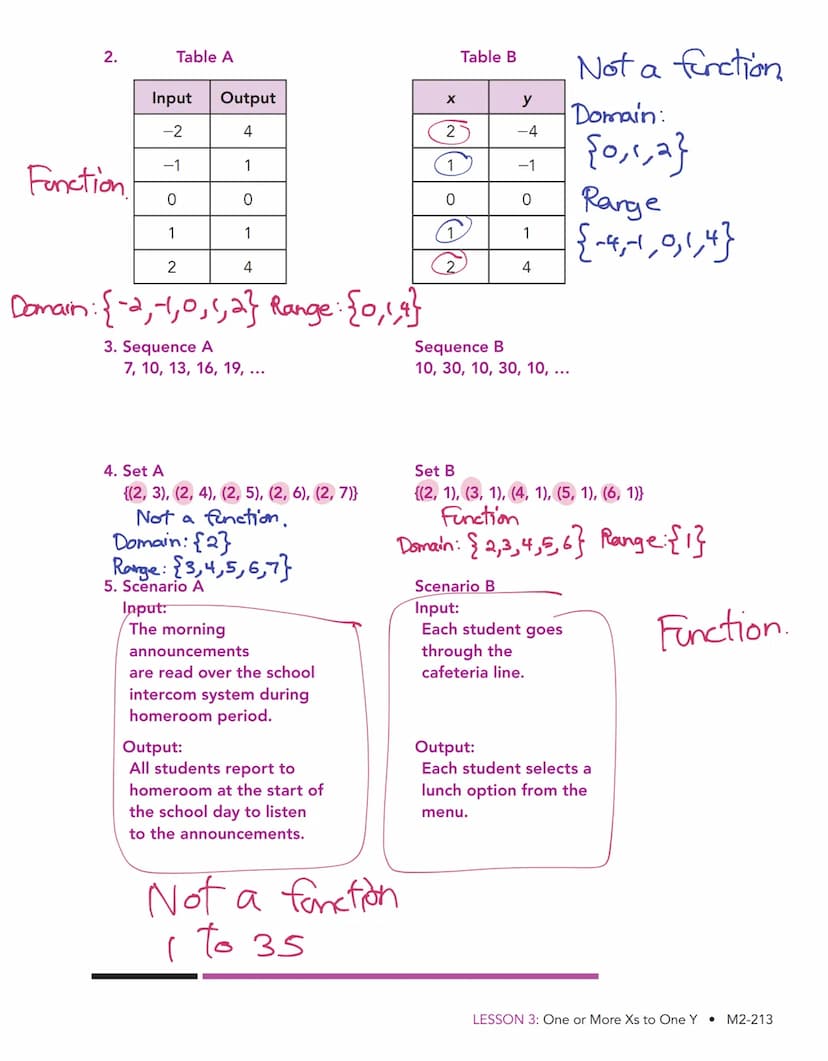 2. Table A
Input Output
−2 4
−1 1
0 0
1 1
2 4
Function.
Domain: {-2,-1,0,1,2} Range: {0,1,4}
Table B
x y
2 −4
1 −1
0 0
1 1
2 4
Not a function
Domain:
{0,1,2}
Range
{-4,-1,0,1,4}
3. Sequence A
7, 10, 13, 16, 19, ...
Sequence B
10, 30, 10, 30, 10, ...
4. Set A
{(2, 3), (2, 4), (2, 5), (2, 6), (2, 7)}
Not a function.
Domain: {2}
Range: {3,4,5,6,7}
Set B
{(2, 1), (3, 1), (4, 1), (5, 1), (6, 1)}
Function
Domain: { 2,3,4,5,6} Range: {1}
5. Scenario A
Input:
The morning
announcements
are read over the school
intercom system during
homeroom period.
Output:
All students report to
homeroom at the start of
the school day to listen
to the announcements.
Not a function
1 to 35
Scenario B
Input:
Each student goes
through the
cafeteria line.
Output:
Each student selects a
lunch option from the
menu.
Function.
LESSON 3: One or More Xs to One Y • M2-213